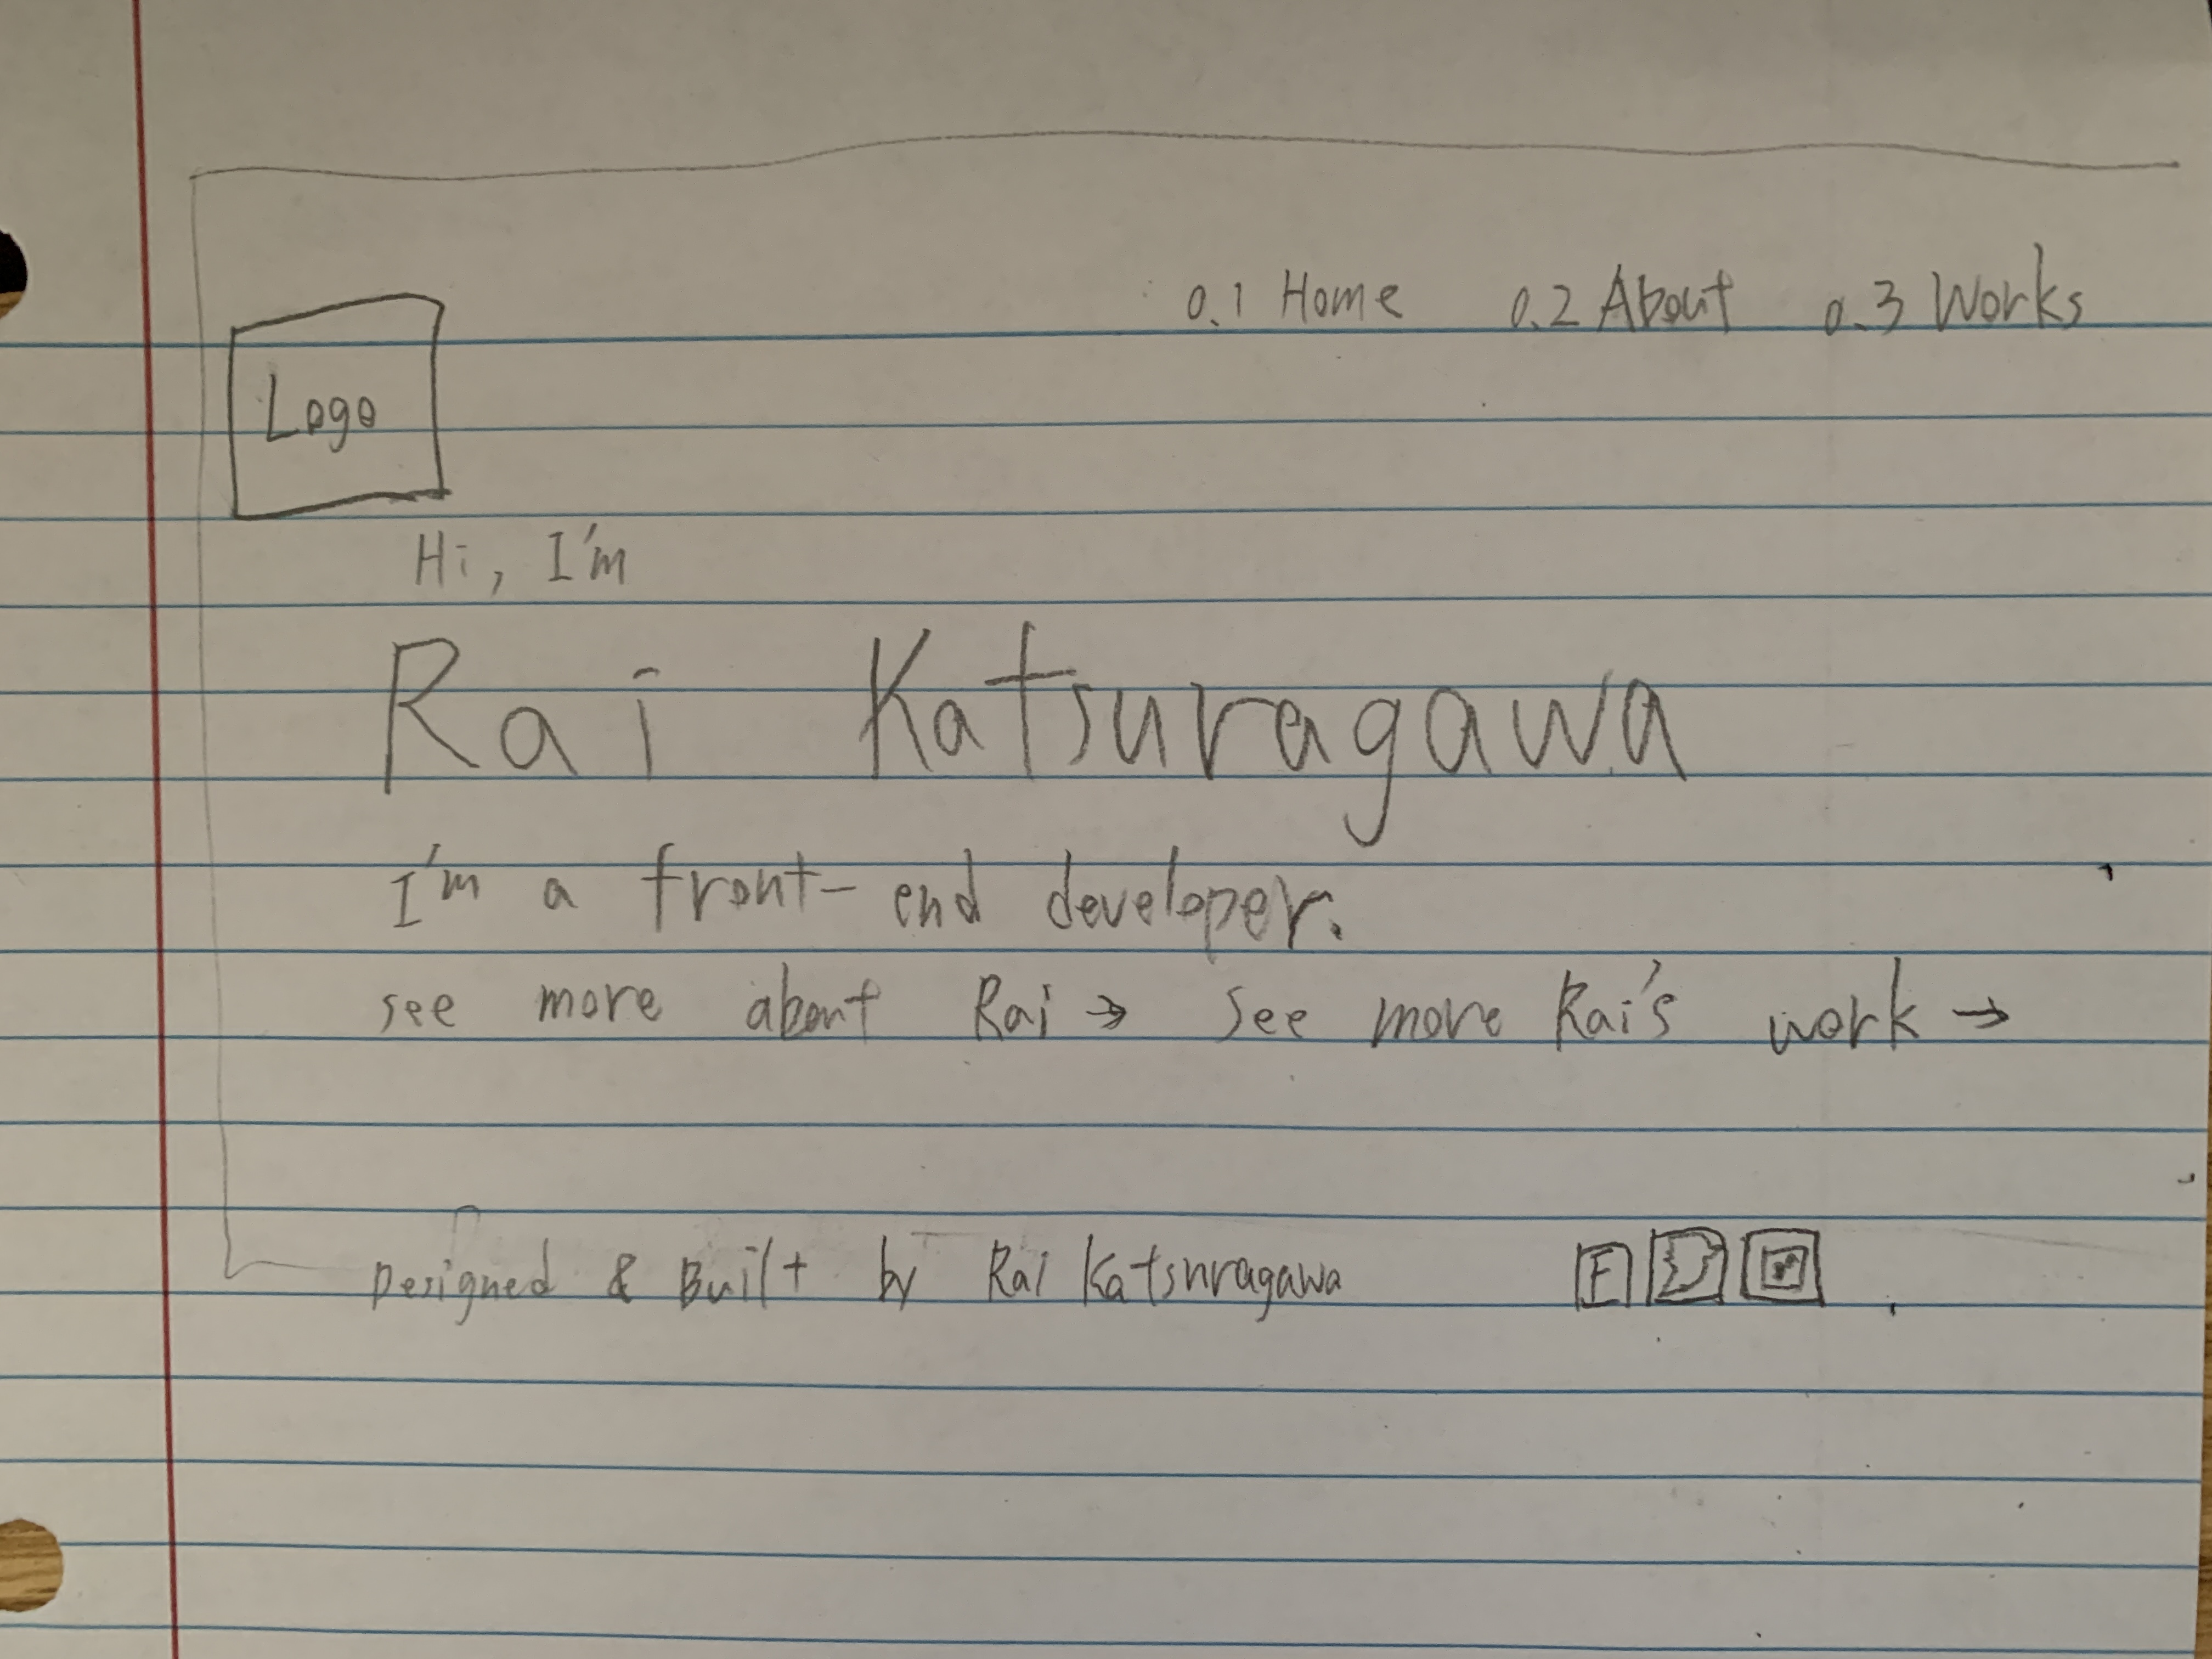 0.1 Home 0.2 About 0.3 Works
Logo
Hi, I'm
Rai Katsuragawa
I'm a front-end developer.
see more about Rai → see more Rai's work →
Designed & Built by Rai Katsuragawa F